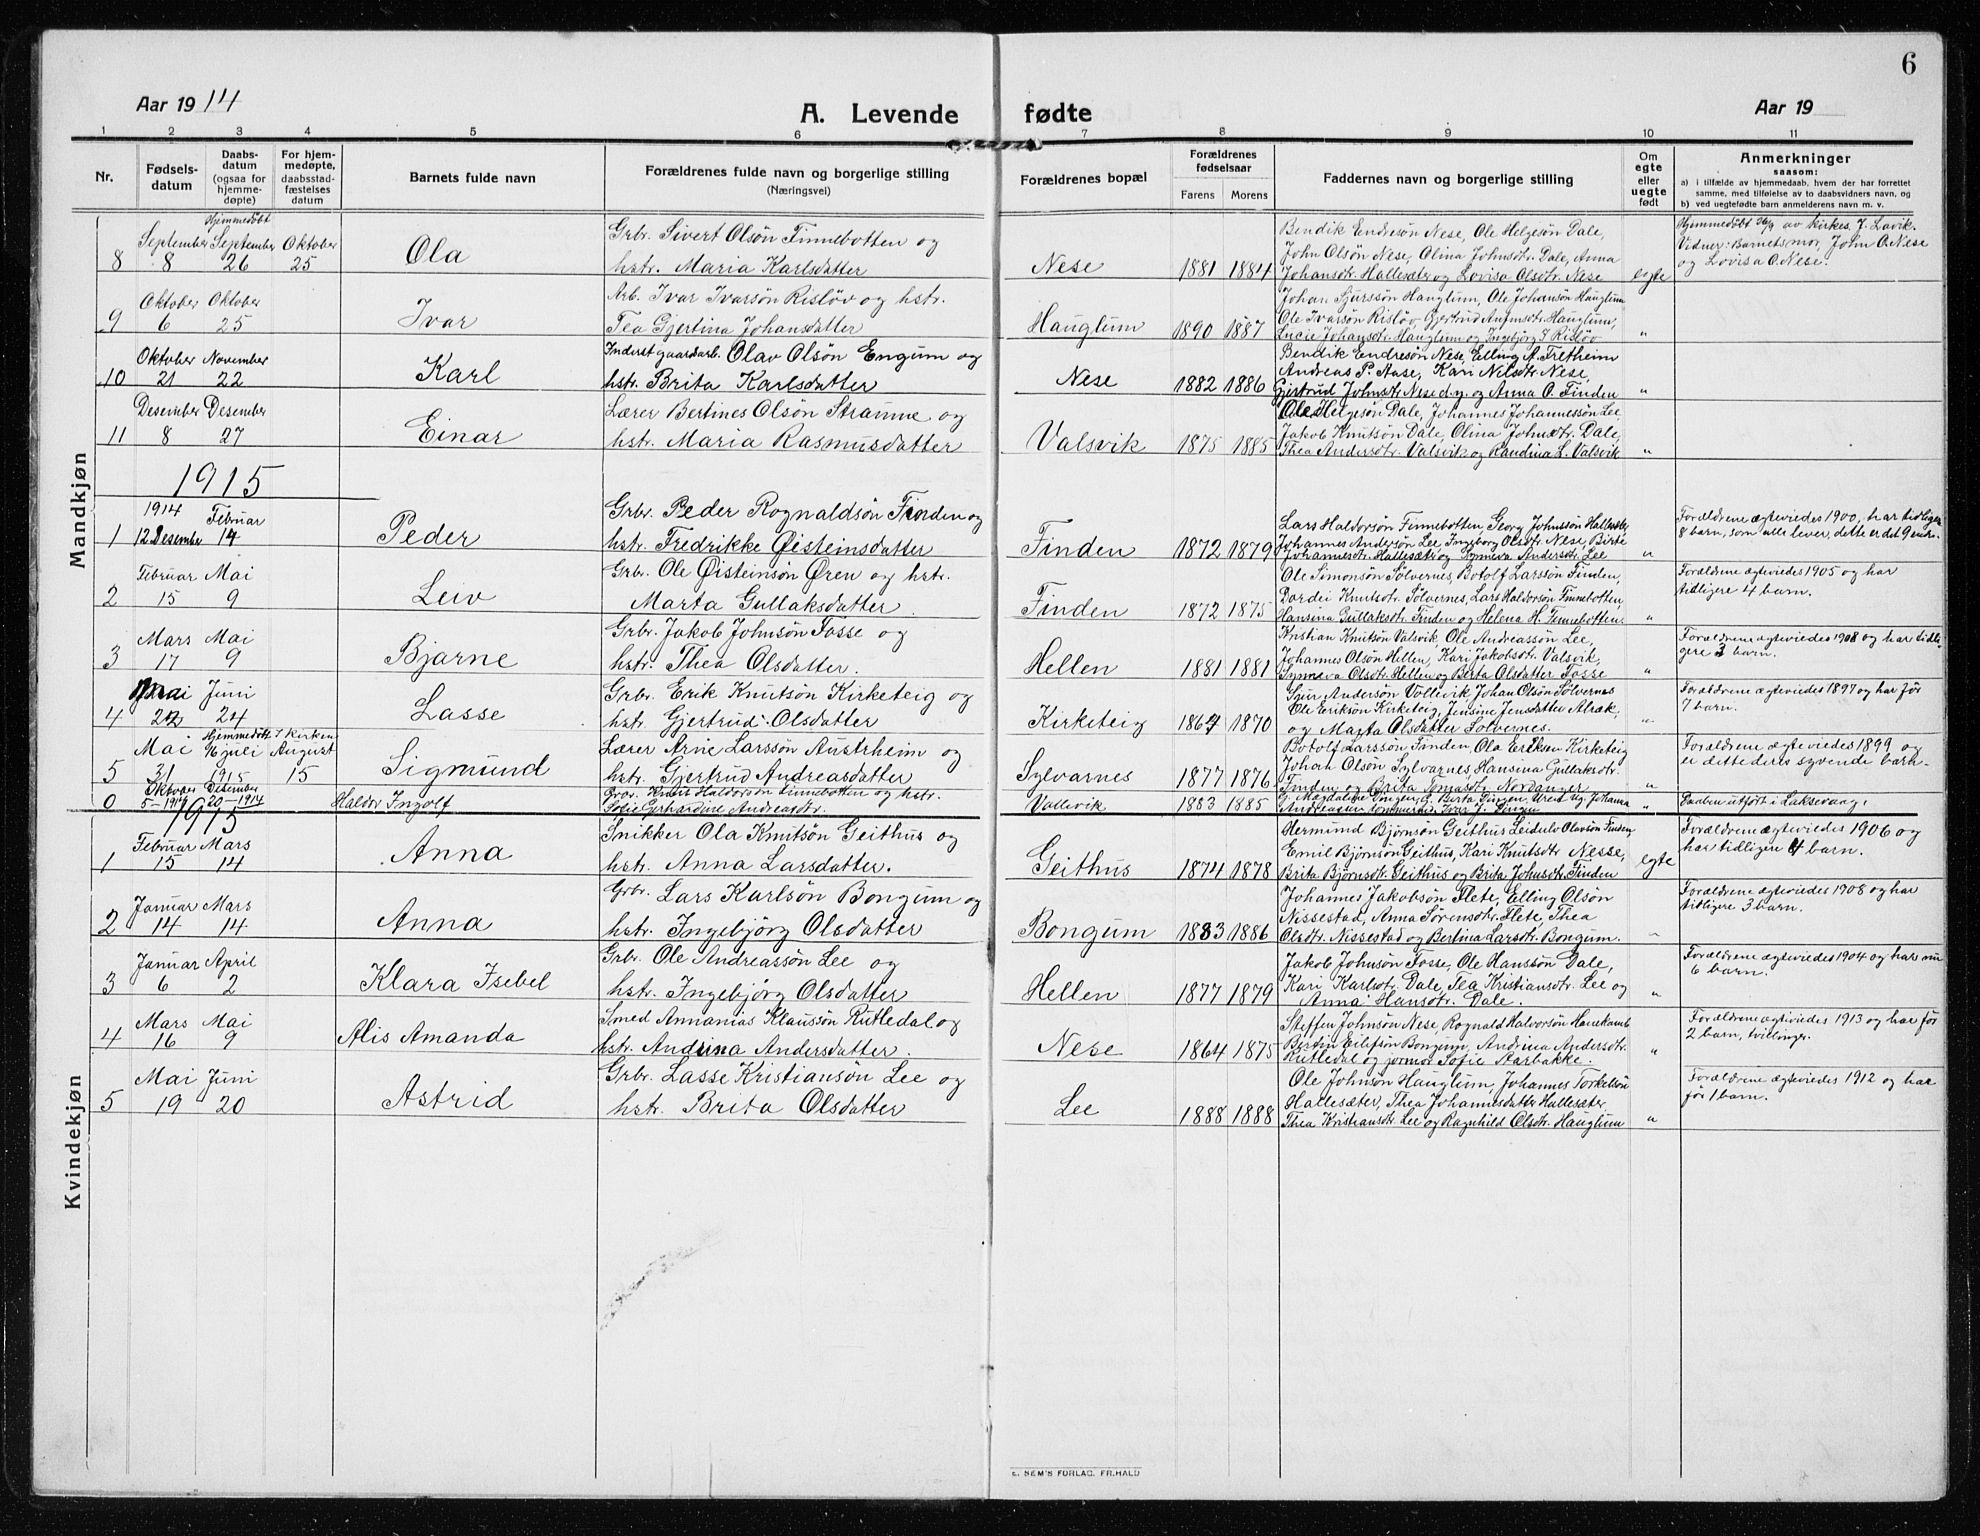 6
Aar 1914
A. Levende fødte
Aar 19
1 2 3 4 5 6 7 8 9 10 11
Nr.
Fødsels-datum
Daabs-datum (ogsaa for hjemme-døpte)
For hjem-medøpte, daabsstad-fæstelses datum
Barnets fulde navn
Forældrenes fulde navn og borgerlige stilling
(Næringsvei)
Forældrenes bopæl
Forældrenes fødselsaar
Farens Morens
Faddernes navn og borgerlige stilling
Om egte eller uegte født
Anmerkninger
saasom:
a) i tilfælde av hjemmedaab, hvem der har forrettet
samme, med tilføielse av to daabsvidners navn, og
b) ved uegtefødte barn anmelderens navn m. v.
Mandkjøn
8 September 8 Hjemmedøbt September 26 Oktober 25
Ola
Grb. Sivert Olsön Finnebotten og
hstr. Maria Karlsdatter
Nese 1881 1884
Bendik Endresön Nese, Ole Helgesön Dale,
John Olsön Nese, Olina Johnsdtr. Dale, Anna
Johansdtr. Hallesæter og Lovisa Olsdtr. Nese
egte
Hjemmedöbt 26/9 av kirkes. J. Lavik.
Vidner: Barnets mor, John O. Nese
og Lovisa O. Nese.
9 Oktober 6 Oktober 25
Ivar
Arb. Ivar Ivarsön Rislöv og hstr.
Tea Gjertina Johansdatter
Hauglum 1890 1887
Johan Sjurssön Hauglum, Ole Johansön Hauglum
Ole Ivarsön Rislöv, Gjertrud Hauglum,
Lucie Johansdtr. Hauglum og Ingebjörg I. Rislöv
"
10 Oktober 21 November 22
Karl
Inderst gaardarb. Olav Olsön Engum og
hstr. Brita Karlsdatter
Nese 1882 1886
Bendik Endresön Nese, Elling A. Fretheim
Andreas P. Aase, Kari Nilsdtr. Nese,
Gjertrud Johnsdtr. Nese d.y. og Anna O. Finden
"
11 Desember 8 Desember 27
Einar
Lærer Bertines Olsön Straume og
hstr. Maria Rasmusdatter
Valsvik 1875 1885
Ole Helgesön Dale, Johannes Johannessön Lee
Jakob Knutsön Dale, Olina Johnsdtr. Dale,
Thea Andersdtr. Valsvik og Randina L. Valsvik
"
1915
1 1914 12 Desember Februar 14
Peder
Grb. Peder Rognaldsön Finden og
hstr. Fredrikke Øisteinsdatter
Finden 1872 1879
Lars Haldorsön Finnebotten Georg Johnssön Hallesæter
Johannes Andersön Lee Ingeborg Olsdtr. Nese Birte
Johannesdtr. Hallesæter og Synneva Andersdtr. Lee
"
Forældrene egteviedes 1900, har tidligere
8 barn, som alle lever, dette er det 9ende.
2 Februar 15 Mai 9
Leiv
Grb. Ole Øisteinsön Ören og hstr.
Marta Gullaksdatter.
Finden 1872 1875
Ole Simonsön Sölvernes, Botolf Larssön Finden,
Dordei Knutsdtr. Sölvernes, Lars Haldorsön Finnebotten,
Hansina Gullaksdtr. Finden og Helena H. Finnebotten.
"
Forældrene egteviedes 1905 og har
tidligere 4 barn.
3 Mars 17 Mai 9
Bjarne
Grb. Jakob Johnsön Fosse og
hstr. Thea Olsdatter.
Hellen 1881 1881
Kristian Knutsön Valsvik, Ole Andreassön Lee,
Johannes Olsön Hellen, Kari Jakobsdtr. Valsvik,
Synneva Olsdtr. Hellen og Berta Olsdatter Fosse
"
Forældrene egteviedes 1908 og har tidligere
3 barn.
4 Mai 22 Juni 24
Lasse
Grb. Erik Knutsön Kirketeig og
hstr. Gjertrud Olsdatter
Kirketeig 1864 1870
Sjur Andersön Vollevik Johan Olsön Sölvernes
Ole Eriksön Kirketeig, Jensine Jensdatter Alræk,
og Marta Olsdatter Sölvernes.
"
Forældrene egteviedes 1897 og har för
7 barn.
5 Mai 31 Hjemmedöbt 16 juli 1915 I kirken August 15
Sigmund
Lærer Arne Larssön Austrheim og
hstr. Gjertrud Andreasdatter
Sylvarnes 1877 1876
Botolf Larssön Finden, Ola Eriksen Kirketeig
Johan Olsön Sylvarnes, Hansina Gullaksdtr.
Finden og Brita Tomasdtr. Nordanger
"
Forældrene egteviedes 1899 og
er dette deres syvende barn.
0 Oktober 5-1914 Desember 20-1914
Haldor Ingolf
Grbr. Knut Haldorson Finnebotten og hstr.
Sofie Gerhardine Andreasdtr.
Vollevik 1883 1885
"
Daaben utfört i Laksevaag.
Kvindekjøn
1915
1 Februar 15 Mars 14
Anna
Snikker Ola Knutsön Geithus og
hstr. Anna Larsdatter.
Geithus 1874 1878
Hermund Björnsön Geithus Leidulv Olavsön Finden
Emil Björnsön Geithus, Kari Knutsdtr. Nesse,
Brita Björnsdtr. Geithus og Brita Johnsdtr. Finden
egte
Forældrene egteviedes 1906 og
har tidligere 4 barn.
2 Januar 14 Mars 14
Anna
Grbr. Lars Karlsön Bongum og
hstr. Ingebjörg Olsdatter
Bongum 1883 1886
Johannes Jakobsön Flete, Elling Olsön
Nissestad, Anna Sörensdtr. Flete, Thea
Olsdtr. Nissestad og Bertina Larsdtr. Bongum.
"
Forældrene egteviedes 1908 og har
tidligere 3 barn.
3 Januar 6 April 2
Klara Isebel
Grb. Ole Andreassön Lee og
hstr. Ingebjörg Olsdatter
Hellen 1877 1879
Jakob Johnsön Fosse, Ole Hanssön Dale,
Kari Karlsdtr. Dale, Tea Kristiansdtr. Lee og
Anna Hansdtr. Dale.
"
Forældrene egteviedes 1904 og har nu
6 barn.
4 Mars 16 Mai 9
Alis Amanda
Smed Annanias Klaussön Rutledal og
hstr. Andrina Andersdatter.
Nese 1864 1875
Steffen Johnsön Nese, Rognald Halvorsön Hanekamb
Bertin Eilifsön Bongum, Andrina Andersdtr.
Rutledal og jormor Sofie Aarbakke.
"
Forældrene egteviedes 1913 og har för
2 barn, tvillinger.
5 Mai 19 Juni 20
Astrid
Grbr. Lasse Kristiansön Lee og
hstr. Brita Olsdatter
Lee 1888 1888
Ole Johnsön Hauglum, Johannes Torkelsön
Hallesæter, Thea Johannesdatter Hallesæter
Thea Kristiansdtr. Lee og Ragnhild Olsdtr. Hauglum
"
Forældrene egteviedes 1912 og har
för 1 barn.
E. SEM'S FORLAG. FR.HALD